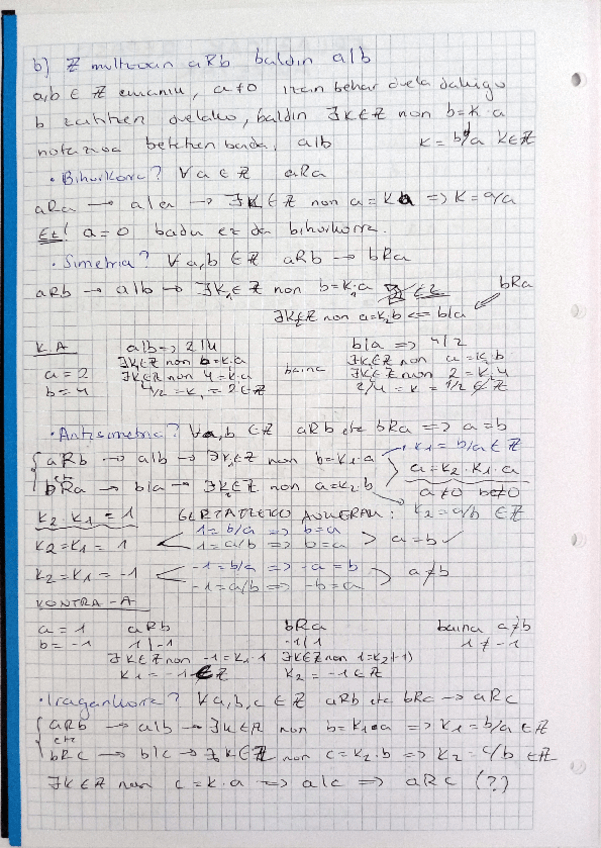 b) ℤ multzoan aRb baldin a|b
a,b ∈ ℤ emanik, a≠0 izan behar duela dakigu
b zatitzen duelako, baldin ∃k∈ℤ non b=k·a
notazioa betetzen bada, a|b k = b/a k∈ℤ
· Bihurkorra? ∀a∈ℤ aRa
aRa → a|a → ∃k∈ℤ non a=k·a => k=a/a
Ez! a=0 bada ez da bihurkorra.
· Simetria? ∀a,b ∈ℤ aRb → bRa
aRb → a|b → ∃k₁∈ℤ non b=k₁·a Ez bRa
∃k₂∈ℤ non a=k₂b <= b|a
K.A a|b => 2|4 b|a => 4|2
∃k₁∈ℤ non b=k₁·a baina ∃k₂∈ℤ non a=k₂b
a=2 ∃k₁∈ℤ non 4=k₁·a ∃k₂∈ℤ non 2=k₂·4
b=4 4/2 = k₁ = 2∈ℤ 2/4 = k = 1/2 ∉ ℤ
· Antisimetria? ∀a,b ∈ℤ aRb eta bRa => a=b
aRb → a|b → ∃k₁∈ℤ non b=k₁·a k₁=b/a∈ℤ
eta a=k₂·k₁·a
bRa → b|a → ∃k₂∈ℤ non a=k₂·b a≠0 b≠0
k₂ k₁ = 1 GERTATZEKO AUKERAK: k₂=a/b ∈ℤ
k₂=k₁= 1 1=b/a => b=a
1=a/b => b=a a=b ✓
k₂=k₁= -1 -1=b/a => -a=b
-1=a/b => -b=a a≠b
KONTRA-A
a=1 aRb bRa baina a≠b
b=-1 1|-1 -1|1 1≠-1
∃k∈ℤ non -1=k₁·1 ∃k∈ℤ non 1=k₂(-1)
k₁=-1∈ℤ k₂=-1∈ℤ
· Iragankorra? ∀a,b,c ∈ℤ aRb eta bRc → aRc
aRb → a|b → ∃k∈ℤ non b=k₁·a => k₁=b/a ∈ℤ
eta
bRc → b|c → ∃k∈ℤ non c=k₂·b => k₂=c/b ∈ℤ
∃k∈ℤ non c=k·a => a|c => aRc (?)